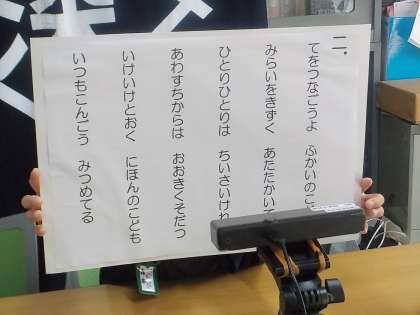 二.
てをつなごうよ ふかいのこ
みらいをきずく あたたかいて
ひとりひとりは ちいさいけれ
あわすちからは おおきくそだつ
いけいけとおく にほんのこども
いつもこんごう みつめてる